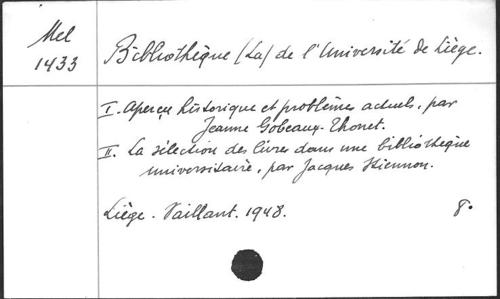 Mel
1433
Bibliothèque (La) de l'Université de Liège.
I. Aperçu historique et problèmes actuels, par
Jeanne Gobeaux-Thonet.
II. La sélection des livres dans une bibliothèque
universitaire, par Jacques Stiennon.
Liège. Vaillant. 1948.
8°